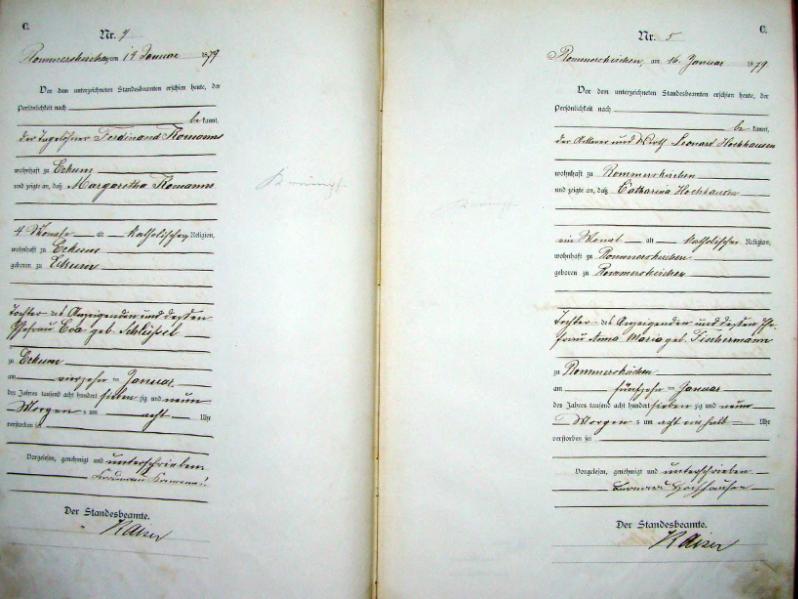 C.
Nr. 4
Rommerskirchen am 14 Januar 1879
Vor dem unterzeichneten Standesbeamten erschien heute, der
Persönlichkeit nach
bekannt,
der Tagelöhner Ferdinand Romanns
wohnhaft zu Eckum
und zeigte an, daß Margaretha Romanns
4 Monate alt katholischer Religion,
wohnhaft zu Eckum
geboren zu Eckum
Tochter des Anzeigenden und dessen
Ehefrau Eva geb. Schlüssel
zu Eckum
am vierzehn Januar
des Jahres tausend acht hundert siebenzig und neun
Morgens um acht Uhr
verstorben sei
Vorgelesen, genehmigt und unterschrieben
Ferdinand
Der Standesbeamte.
Kaiser
C.
Nr. 5
Rommerskirchen, am 16. Januar 1879.
Vor dem unterzeichneten Standesbeamten erschien heute, der
Persönlichkeit nach
bekannt,
der Ackerer und Wirth Leonard Hochhausen
wohnhaft zu Rommerskirchen
und zeigte an, daß Catharina Hochhausen
ein Monat alt katholischer Religion,
wohnhaft zu Rommerskirchen
geboren zu Rommerskirchen
Tochter des Anzeigenden und dessen Ehe-
frau Anna Maria geb. Fischermann
zu Rommerskirchen
am fünfzehn Januar
des Jahres tausend acht hundert siebenzig und neun
Morgens um acht einhalb Uhr
verstorben sei
Vorgelesen, genehmigt und unterschrieben
Leonard Hochhausen
Der Standesbeamte.
Kaiser